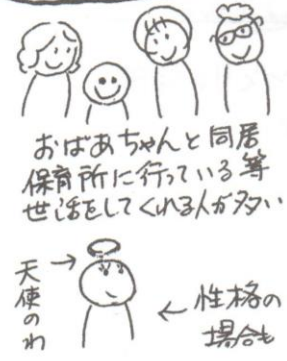 おばあちゃんと同居
保育所に行っている等
世話をしてくれる人が多い
天使のわ
性格の
場合も